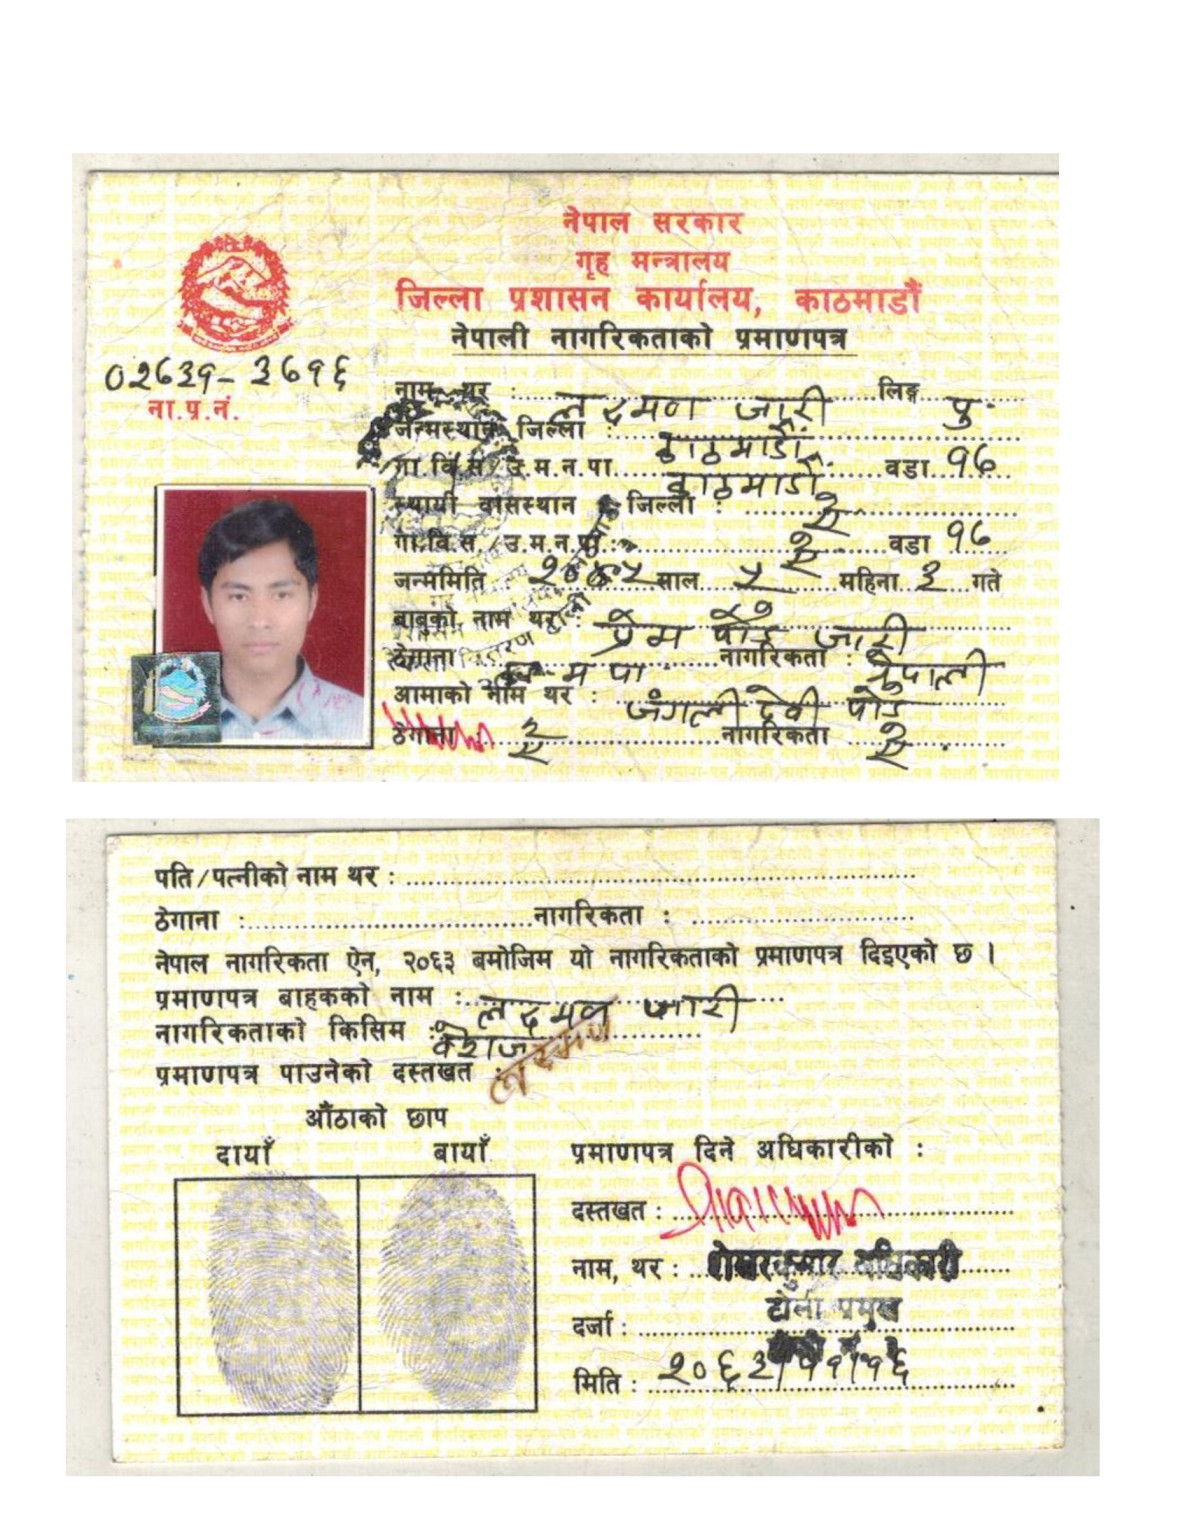 नेपाल सरकार
गृह मन्त्रालय
जिल्ला प्रशासन कार्यालय, काठमाडौं
नेपाली नागरिकताको प्रमाणपत्र
ना.प्र.नं.
नाम थर : लक्ष्मण जारी लिङ्ग पु.
जन्मस्थान जिल्ला : काठमाडौं
गा.वि.स./उ.म.न.पा. काठमाडौं वडा १६
स्थायी वासस्थान जिल्ला :
गा.वि.स./उ.म.न.पा. : वडा १६
जन्ममिति साल ५ महिना ३ गते
बाबुको नाम थर : प्रेम पोडे जारी
ठेगाना म पा नागरिकता : नेपाली
आमाको नाम थर : जंगली देवी पोडे
ठेगाना नागरिकता
पति/पत्नीको नाम थर :
ठेगाना : नागरिकता :
नेपाल नागरिकता ऐन, २०६३ बमोजिम यो नागरिकताको प्रमाणपत्र दिइएको छ ।
प्रमाणपत्र बाहकको नाम : लक्ष्मण जारी
नागरिकताको किसिम : वंशज
प्रमाणपत्र पाउनेको दस्तखत : लक्ष्मण
औंठाको छाप
दायाँ बायाँ
प्रमाणपत्र दिने अधिकारीको :
दस्तखत :
नाम, थर : अधिकारी
दर्जा : टोली प्रमुख
मिति : २०६३/११/१६